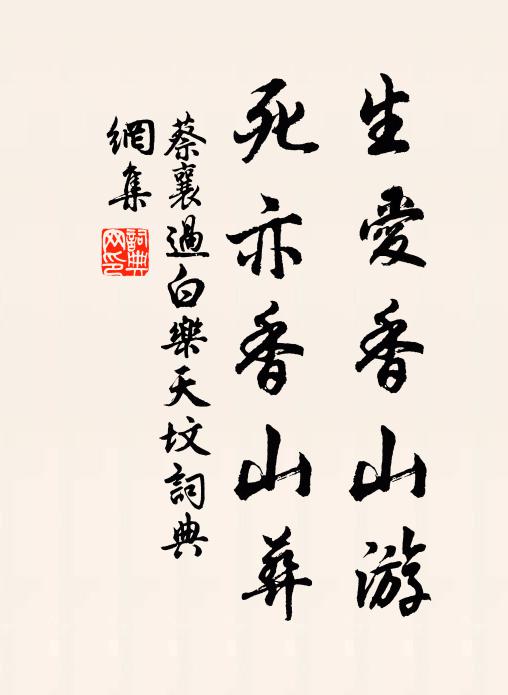 生愛香山游
死亦香山葬
蔡襄過白樂天墳詞典
網集
詞典網印